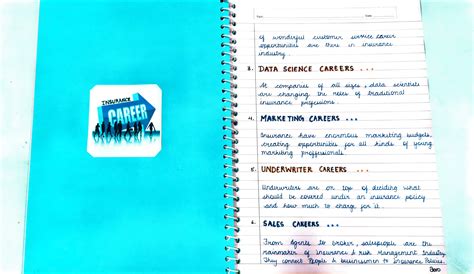 INSURANCE
CAREER
of wonderful customer service career
opportunities are there in insurance
industry.
3. DATA SCIENCE CAREERS ...
At companies of all sizes, data scientists
are changing the roles of traditional
insurance professions.
4. MARKETING CAREERS ...
Insurance have enormous marketing budgets,
creating opportunities for all kinds of young
marketing professionals.
5. UNDERWRITER CAREERS ...
Underwriters are on top of deciding what
should be covered in an insurance policy
and how much to charge for it.
6. SALES CAREERS ...
From Agents to broker, salespeople are the
rainmaker of insurance & risk Management Industry
They connect People & businessmen to Insurance Policies